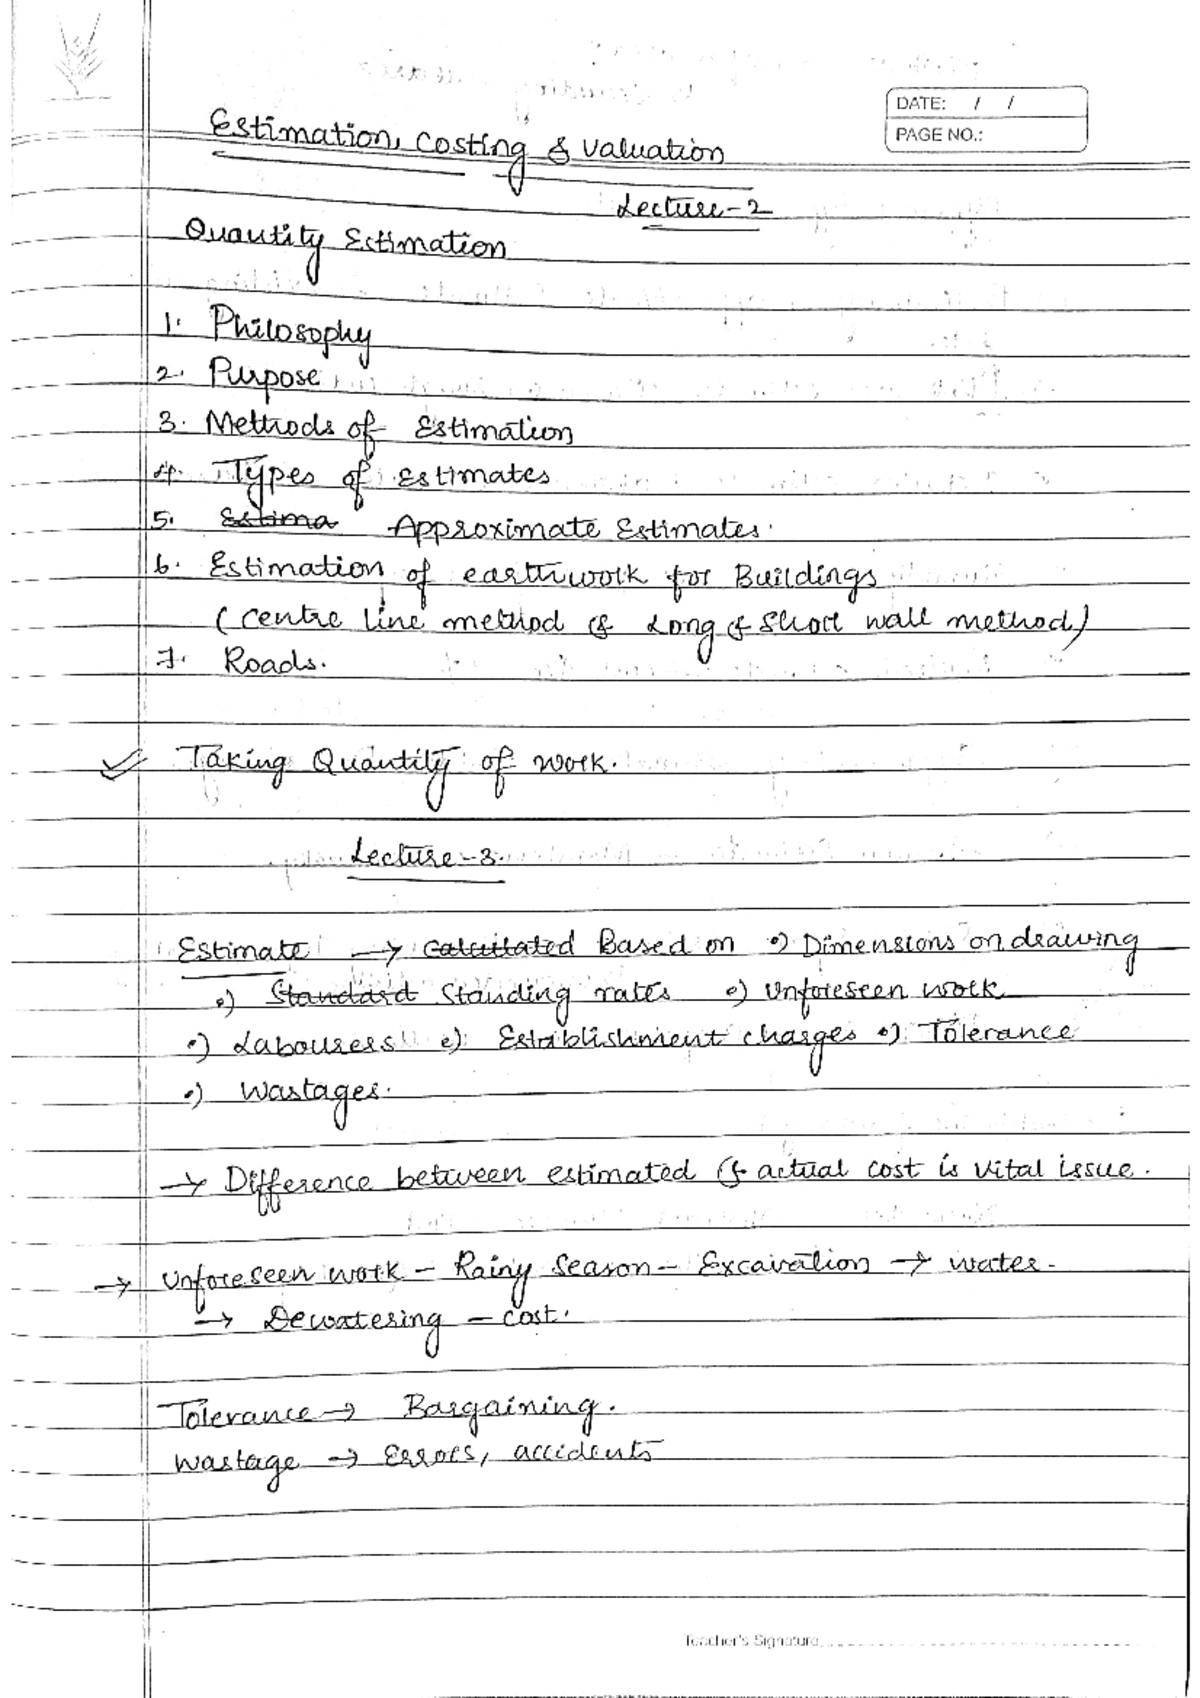 DATE: / /
PAGE NO.:
Estimation, Costing & Valuation
Lecture-2
Quantity Estimation
1. Philosophy
2. Purpose
3. Methods of Estimation
4. Types of Estimates
5. Estima Approximate Estimates.
6. Estimation of earthwork for Buildings
(Centre line method & Long & Short wall method)
7. Roads.
Taking Quantity of work.
Lecture-3.
Estimate → Calculated Based on •) Dimensions on drawing
•) Standard Standing rates •) Unforeseen work
•) Labourers •) Establishment charges •) Tolerance
•) Wastages.
→ Difference between estimated & actual cost is vital issue.
→ Unforeseen work - Rainy Season - Excavation → water.
→ Dewatering - cost.
Tolerance → Bargaining.
Wastage → Errors, accidents
Teacher's Signature